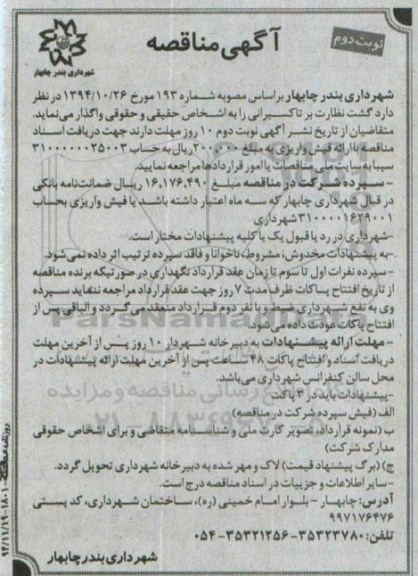 نوبت دوم
آگهی مناقصه
شهرداری بندر چابهار
شهرداری بندر چابهار براساس مصوبه شماره ۱۹۳ مورخ ۱۳۹۴/۱۰/۲۶ در نظر
دارد گشت نظارت بر تاکسیرانی را به اشخاص حقیقی و حقوقی واگذار می‌نماید.
متقاضیان از تاریخ نشر آگهی نوبت دوم ۱۰ روز مهلت دارند جهت دریافت اسناد
مناقصه با ارائه فیش واریزی به مبلغ ۲۰۰،۰۰۰ ریال به حساب ۳۱۰۰۰۰۰۰۲۵۰۰۳
سیبا به سایت ملی مناقصات یا امور قراردادها مراجعه نمایید.
-سپرده شرکت در مناقصه مبلغ ۱۶،۱۷۶،۴۹۰ ریال ضمانت‌نامه بانکی
در قبال شهرداری چابهار که سه ماه اعتبار داشته باشد یا فیش واریزی بحساب
۳۱۰۰۰۰۱۶۲۹۰۰۱ شهرداری
-شهرداری در رد یا قبول یک یا کلیه پیشنهادات مختار است.
-به پیشنهادات مخدوش، مشروط، ناخوانا و فاقد سپرده ترتیب اثر داده نمی‌شود.
-سپرده نفرات اول تا سوم تا زمان عقد قرارداد نگهداری در صورتیکه برنده مناقصه
از تاریخ افتتاح پاکات ظرف مدت ۷ روز جهت عقد قرارداد مراجعه ننماید سپرده
وی به نفع شهرداری ضبط و با نفر دوم قرارداد منعقد می‌گردد و الباقی پس از
افتتاح پاکات عودت داده می‌شود.
-مهلت ارائه پیشنهادات به دبیرخانه شهردار ۱۰ روز پس از آخرین مهلت
دریافت اسناد و افتتاح پاکات ۴۸ ساعت پس از آخرین مهلت ارائه پیشنهادات در
محل سالن کنفرانس شهرداری می‌باشد.
-پیشنهادات باید در ۳ پاکت
الف (فیش سپرده شرکت در مناقصه)
ب (نمونه قرارداد، تصویر کارت ملی و شناسنامه متقاضی و برای اشخاص حقوقی
مدارک شرکت)
ج) (برگ پیشنهاد قیمت) لاک و مهر شده به دبیرخانه شهرداری تحویل گردد.
-سایر اطلاعات و جزییات در اسناد مناقصه درج است.
آدرس: چابهار - بلوار امام خمینی (ره)، ساختمان شهرداری، کد پستی
۹۹۷۱۷۶۴۷۶
تلفن: ۳۵۳۲۳۷۸۰-۳۵۳۲۱۲۵۶-۰۵۴
شهرداری بندر چابهار
ParsNamad